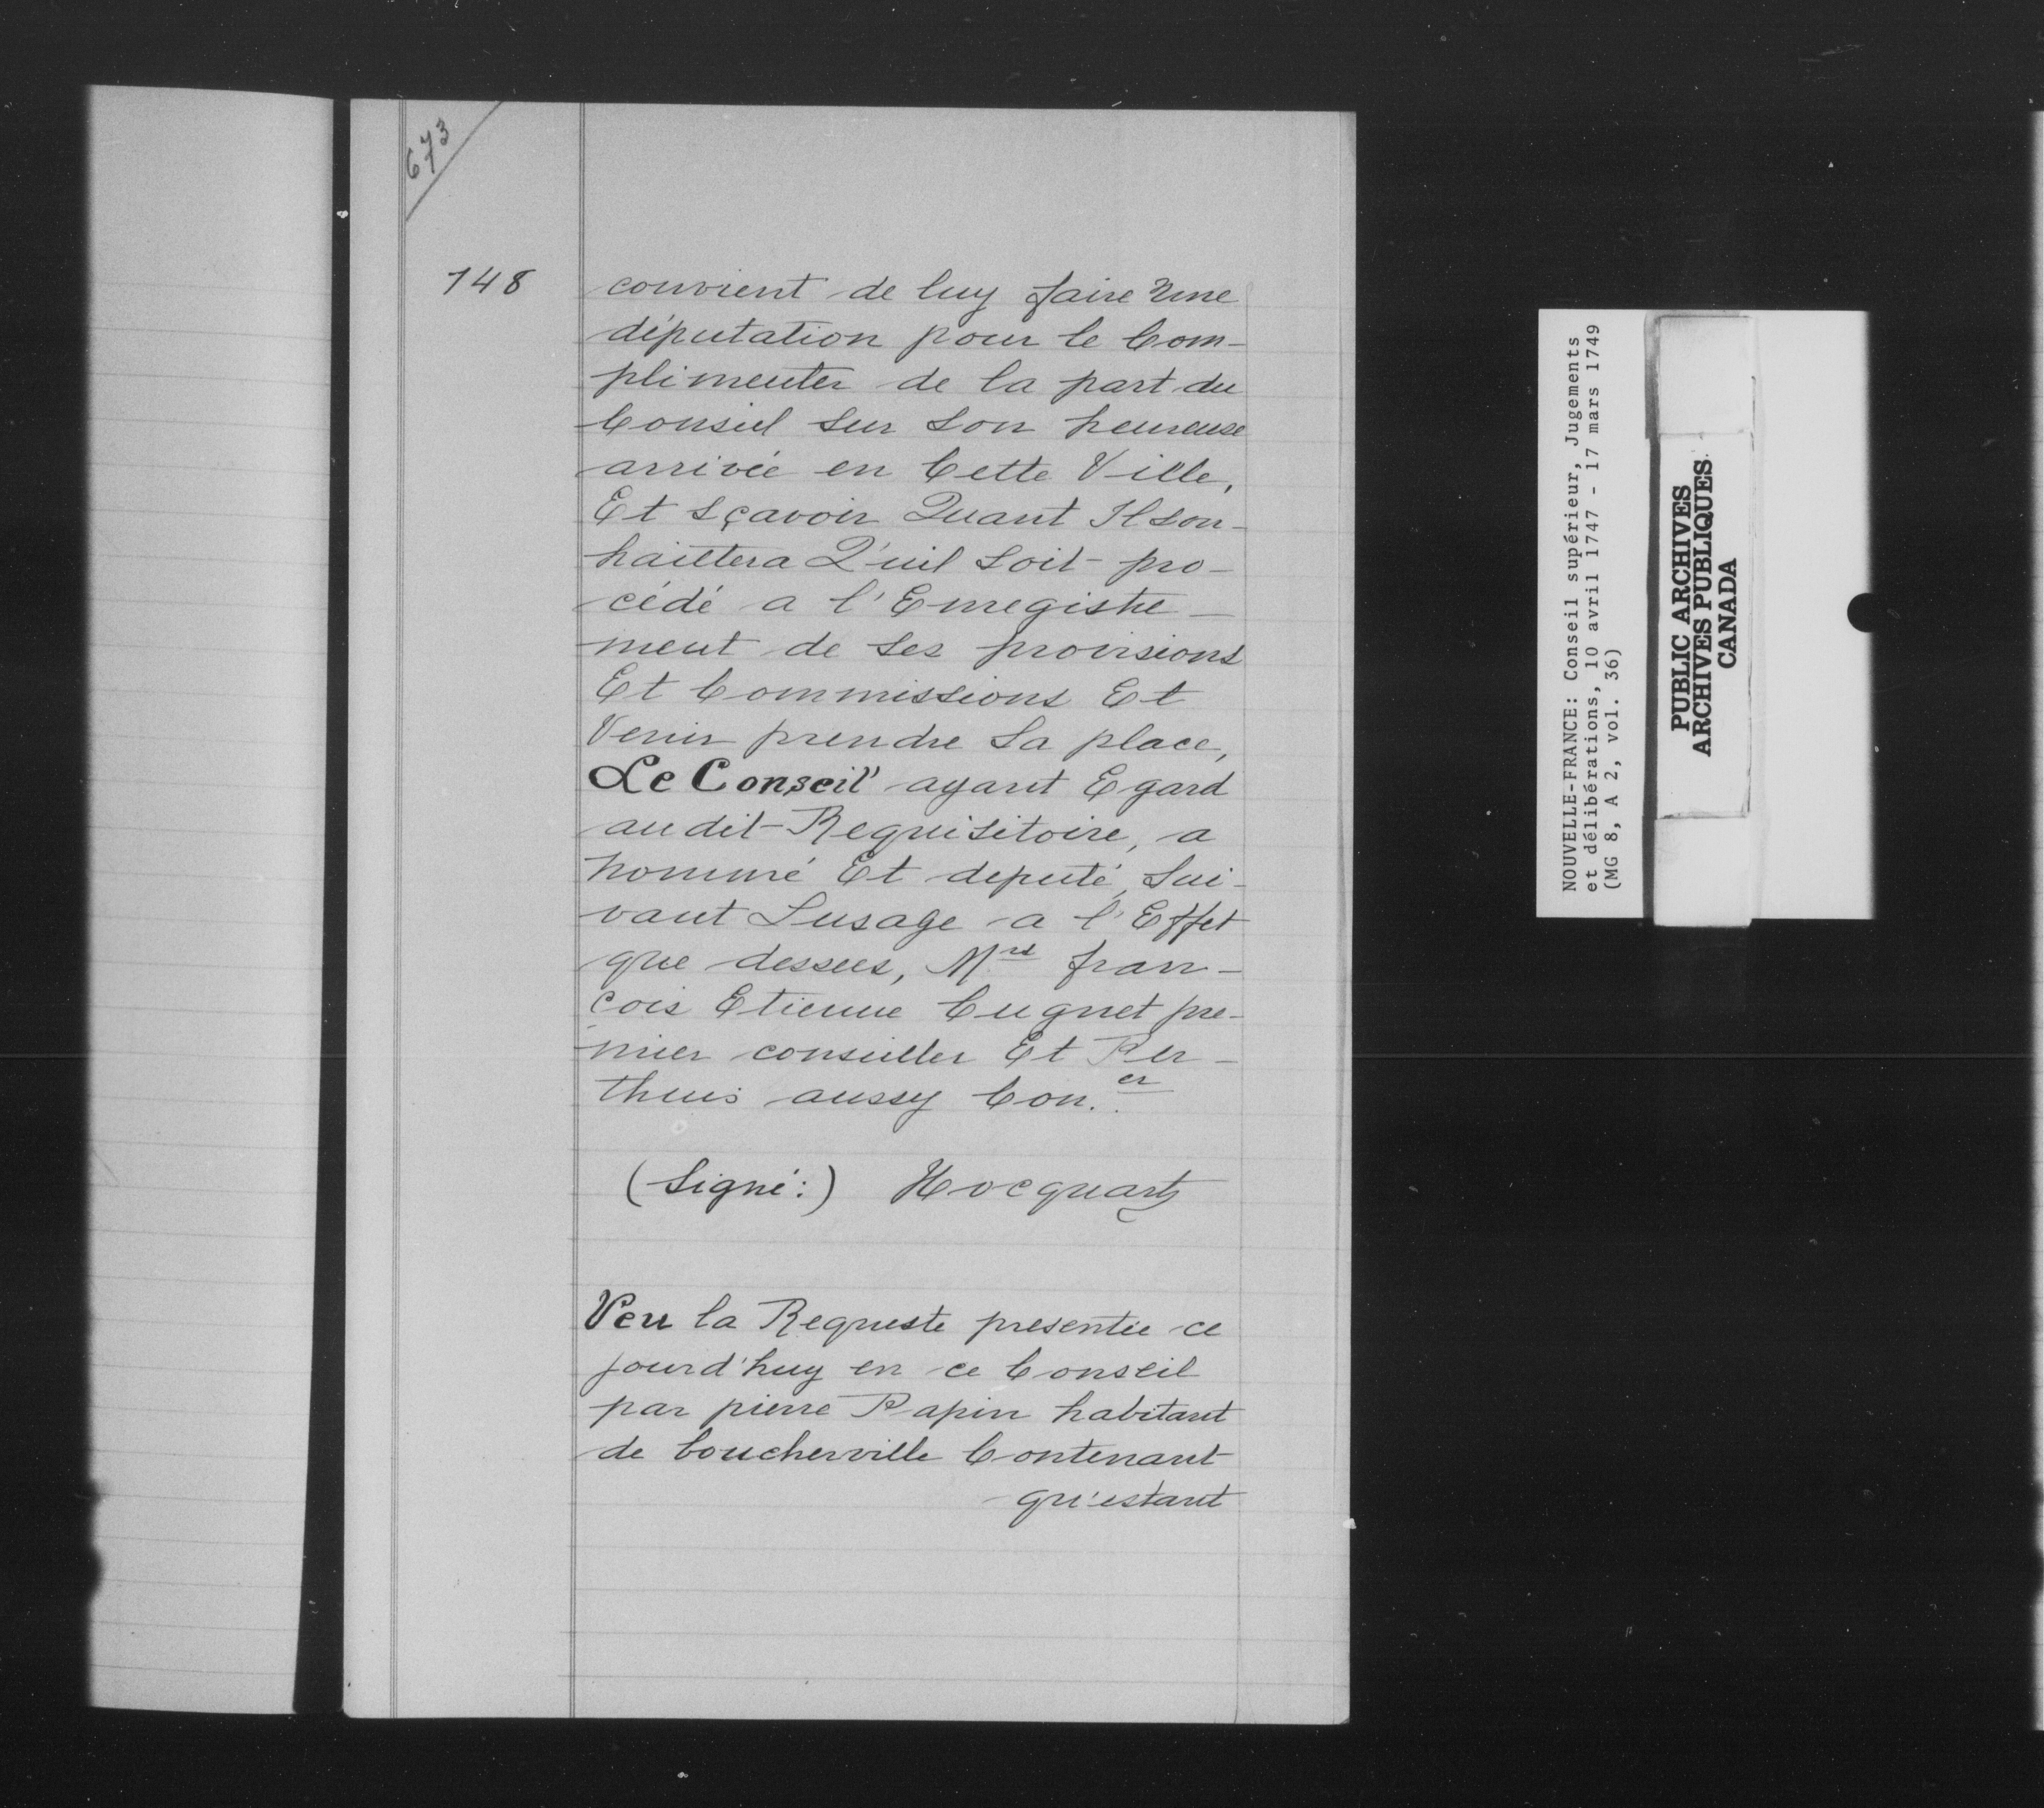 673
148
convient de luy faire Une
députation pour le Com-
plimenter de la part du
Conseil sur son heureuse
arrivée en Cette Ville,
Et sçavoir Quant Il sou-
haittera Q'uil soit pro-
cédé a l'Enregistre-
ment de ses provisions
Et Commissions Et
Venir prendre Sa place,
Le Conseil ayant Egard
au dit Requisitoire, a
nommé Et deputé, Sui-
vant Lusage a l'Effet
que dessus, Mrs fran-
çois Etienne Cugnet pre-
mier conseiller Et Per-
thuis aussy Con.er
(Signé:) Hocquart
Veu la Requeste presentée ce
jourd'huy en ce Conseil
par pierre Papin habitant
de boucherville Contenant
qu'estant
NOUVELLE-FRANCE: Conseil supérieur, Jugements
et délibérations, 10 avril 1747 - 17 mars 1749
(MG 8, A 2, vol. 36)
PUBLIC ARCHIVES
ARCHIVES PUBLIQUES
CANADA